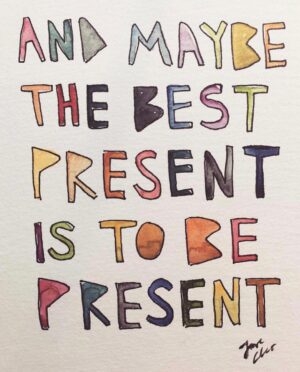 AND MAYBE
THE BEST
PRESENT
IS TO BE
PRESENT